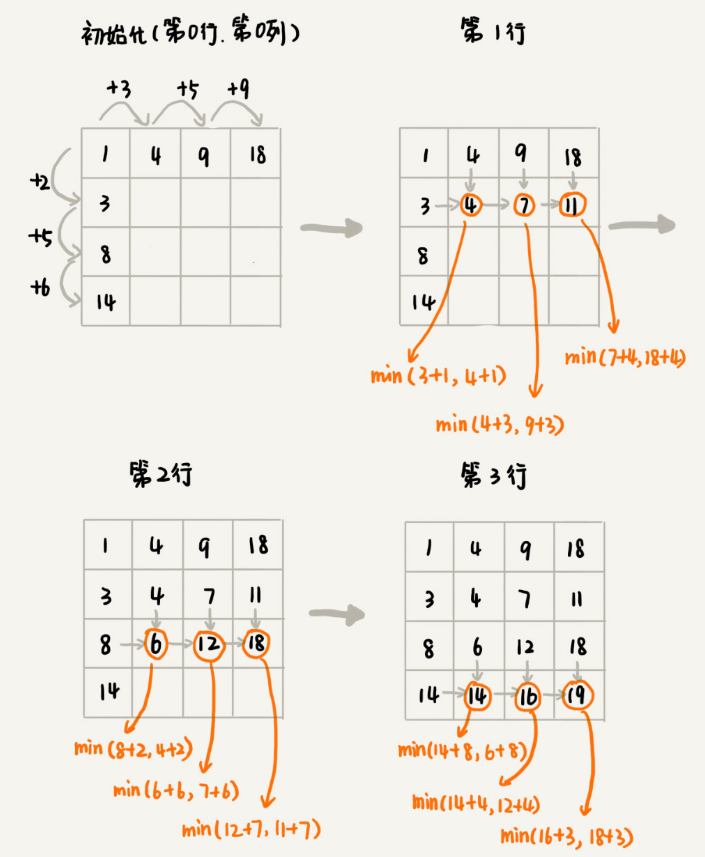 初始化(第0行.第0列)
第1行
+3 +5 +9
1 4 9 18
+2
3
+5
8
+6
14
1 4 9 18
3 4 7 11
8
14
min(3+1, 4+1)
min(7+4,18+4)
min(4+3, 9+3)
第2行
第3行
1 4 9 18
3 4 7 11
8 6 12 18
14
min(8+2,4+2)
min(6+6, 7+6)
min(12+7,11+7)
1 4 9 18
3 4 7 11
8 6 12 18
14 14 16 19
min(14+8,6+8)
min(14+4,12+4)
min(16+3, 18+3)